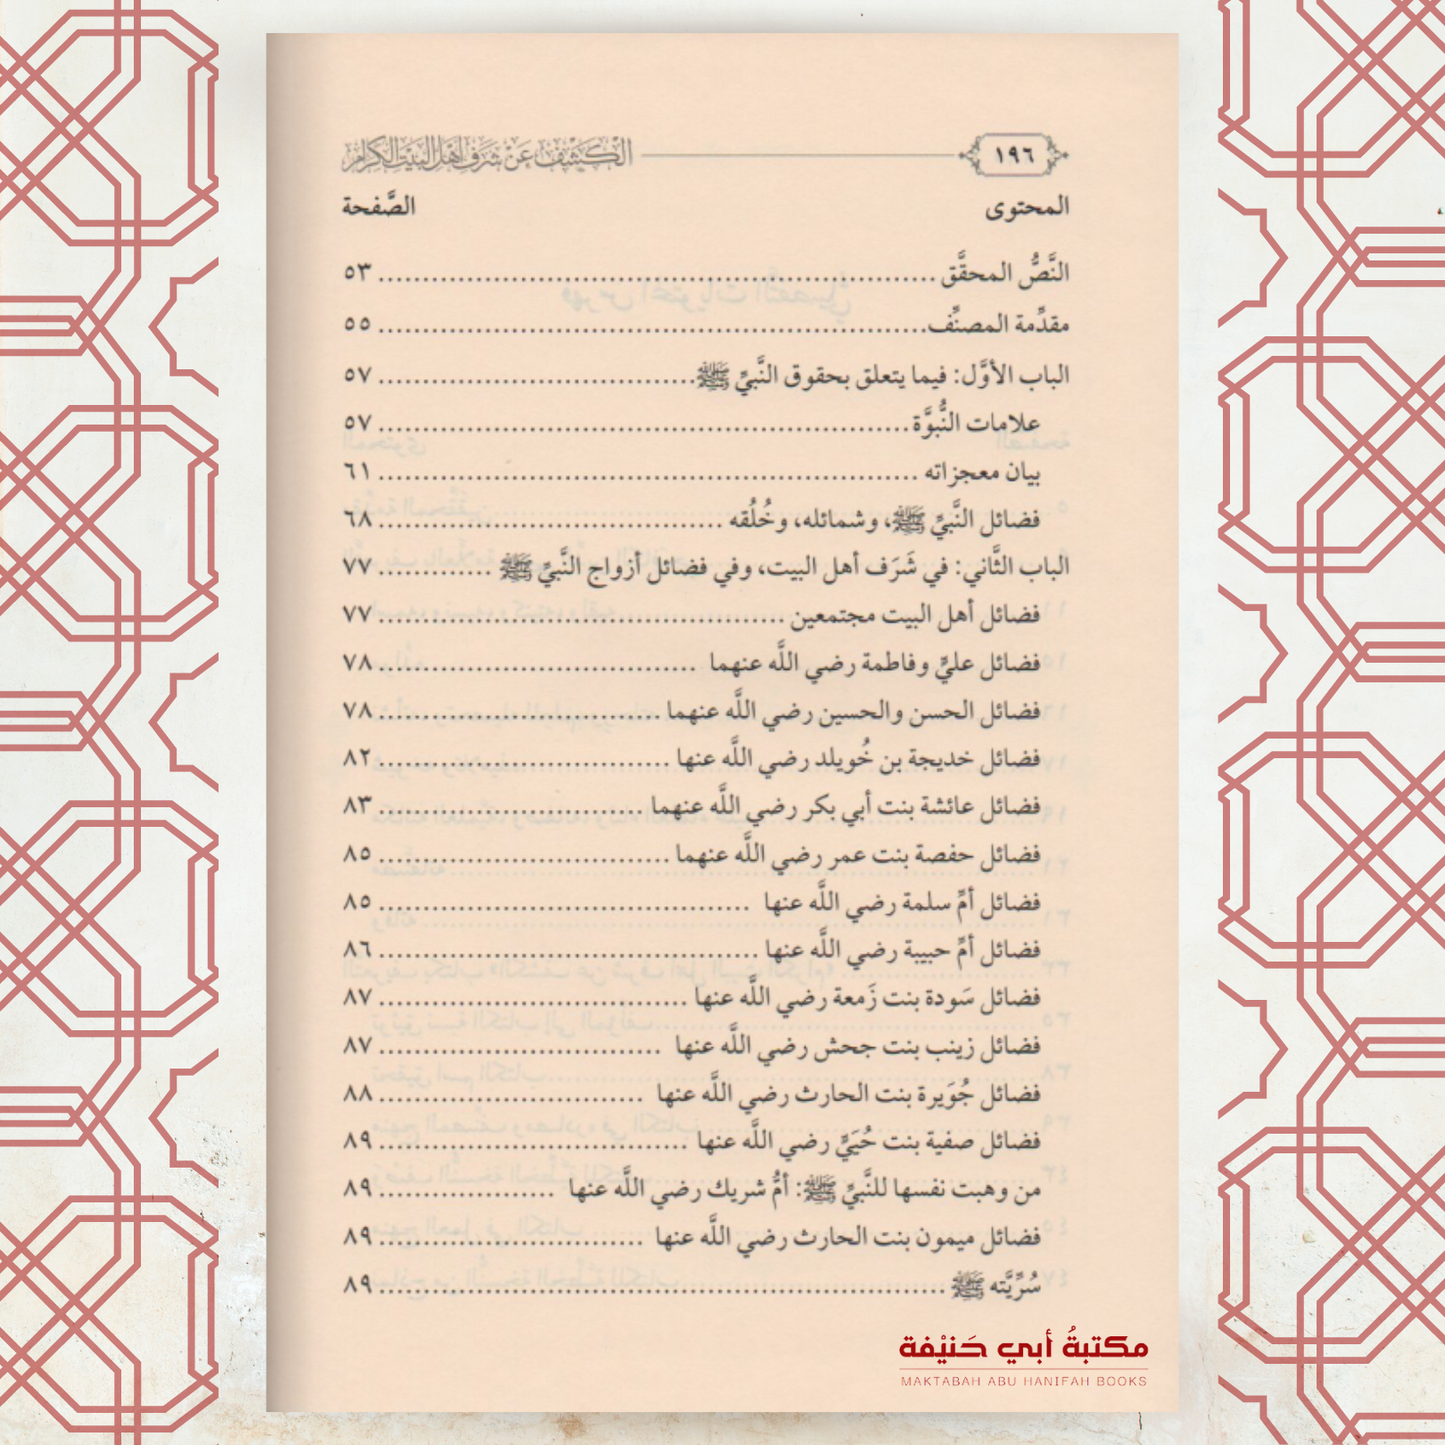 ١٩٦ الكشف عن شرف أهل البيت الكرام
المحتوى الصَّفحة
النَّصُّ المحقَّق ٥٣
مقدِّمة المصنِّف ٥٥
الباب الأوَّل: فيما يتعلق بحقوق النَّبيِّ ﷺ ٥٧
علامات النُّبوَّة ٥٧
بيان معجزاته ٦١
فضائل النَّبيِّ ﷺ، وشمائله، وخُلُقه ٦٨
الباب الثَّاني: في شَرَف أهل البيت، وفي فضائل أزواج النَّبيِّ ﷺ ٧٧
فضائل أهل البيت مجتمعين ٧٧
فضائل عليٍّ وفاطمة رضي اللَّه عنهما ٧٨
فضائل الحسن والحسين رضي اللَّه عنهما ٧٨
فضائل خديجة بن خُويلد رضي اللَّه عنها ٨٢
فضائل عائشة بنت أبي بكر رضي اللَّه عنهما ٨٣
فضائل حفصة بنت عمر رضي اللَّه عنهما ٨٥
فضائل أمِّ سلمة رضي اللَّه عنها ٨٥
فضائل أمِّ حبيبة رضي اللَّه عنها ٨٦
فضائل سَودة بنت زَمعة رضي اللَّه عنها ٨٧
فضائل زينب بنت جحش رضي اللَّه عنها ٨٧
فضائل جُوَيرة بنت الحارث رضي اللَّه عنها ٨٨
فضائل صفية بنت حُيَيٍّ رضي اللَّه عنها ٨٩
من وهبت نفسها للنَّبيِّ ﷺ: أمُّ شريك رضي اللَّه عنها ٨٩
فضائل ميمون بنت الحارث رضي اللَّه عنها ٨٩
سُرِّيَّته ﷺ ٨٩
مكتبةُ أبي حَنيْفة
MAKTABAH ABU HANIFAH BOOKS